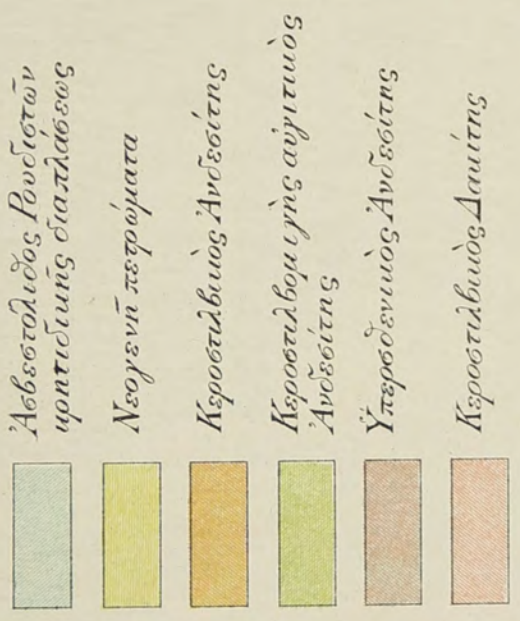 Ἀσβεστόλιθος Ρουδιστῶν
κρητιδικῆς διαπλάσεως
Νεογενῆ πετρώματα
Κεροστιλβικὸς Ἀνδεσίτης
Κεροστιλβομιγὴς αὐγιτικὸς
Ἀνδεσίτης
Ὑπερσθενικὸς Ἀνδεσίτης
Κεροστιλβικὸς Δακίτης